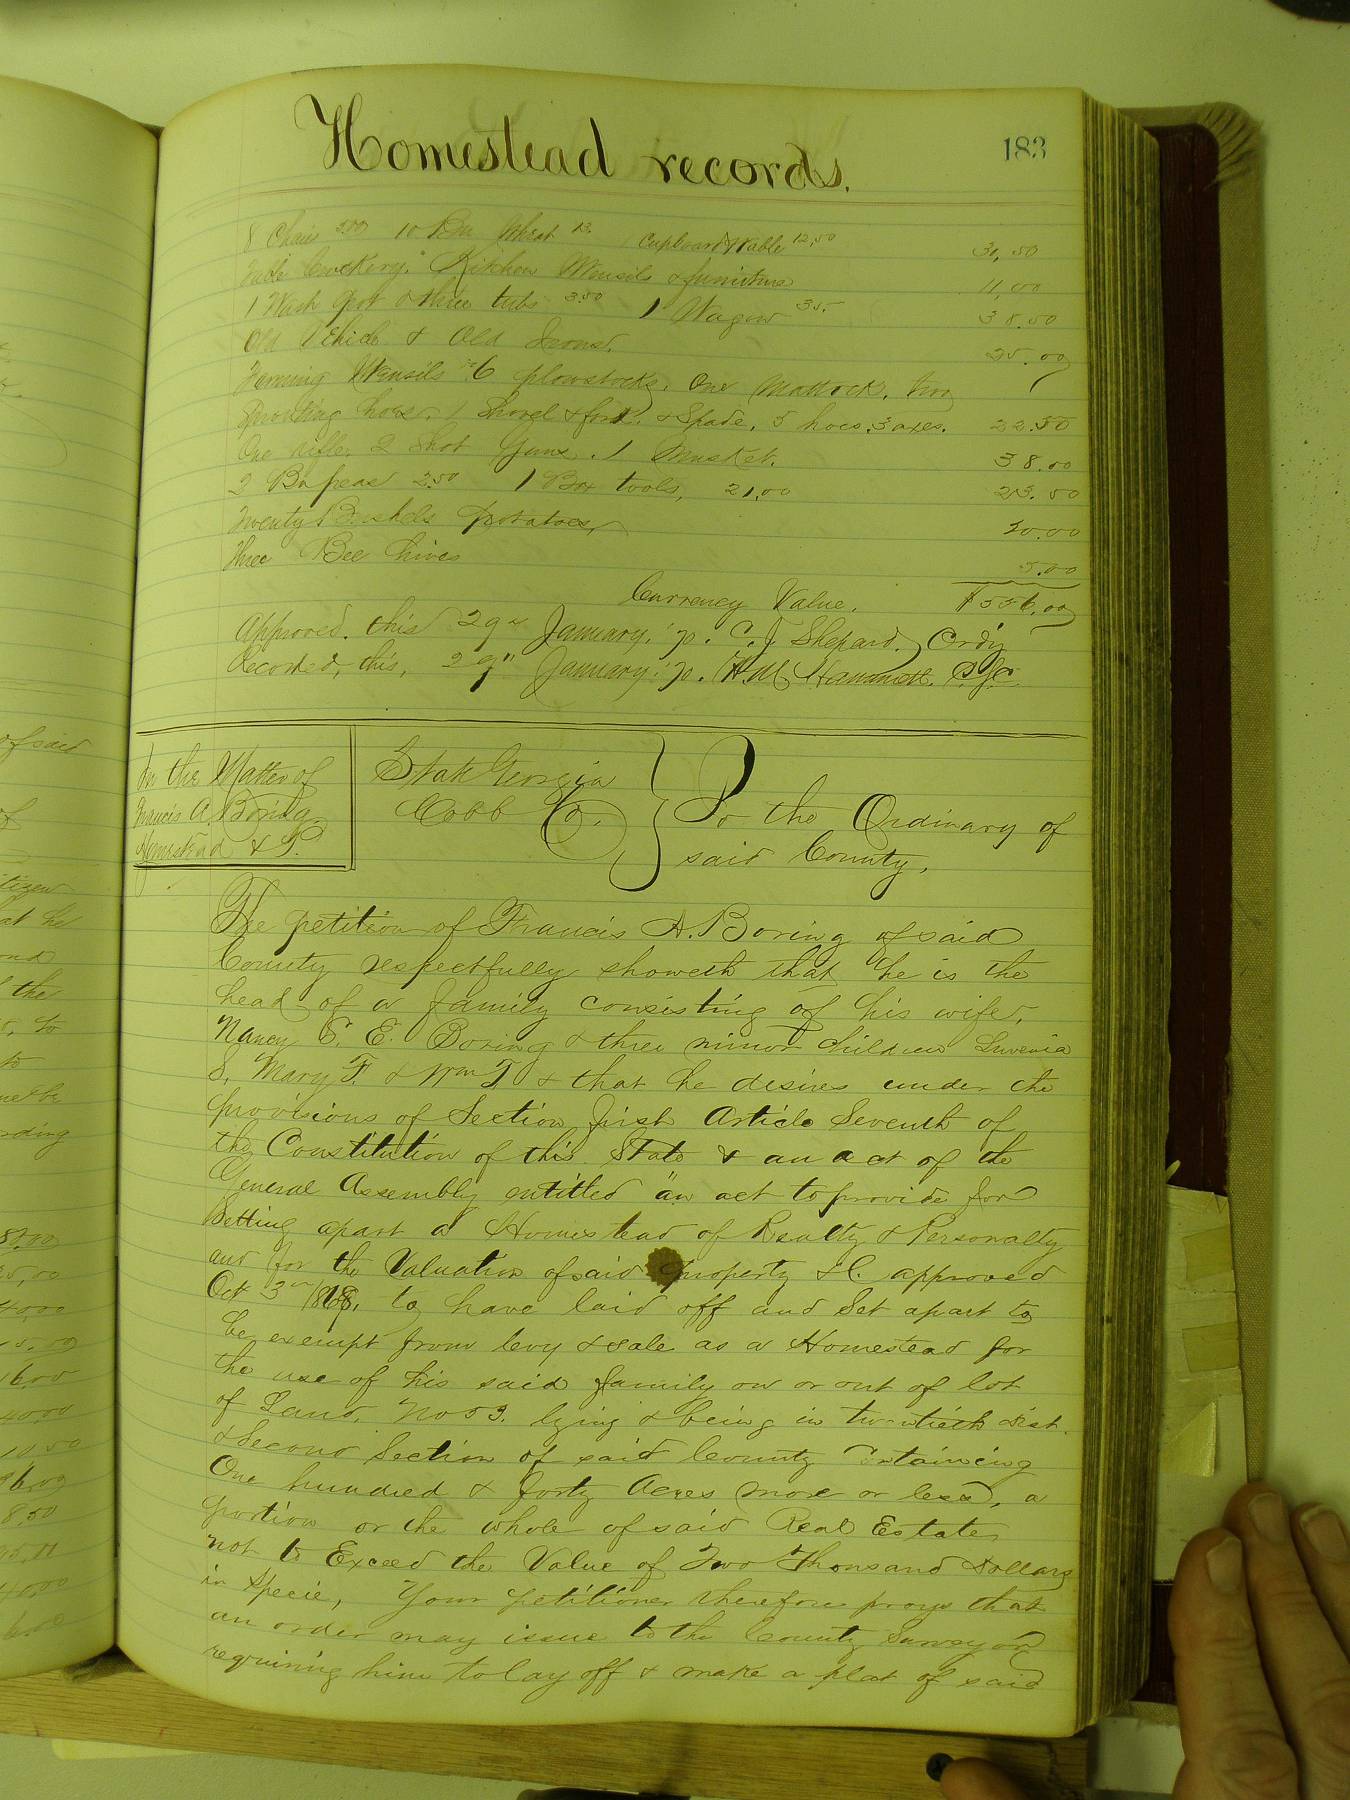 Homestead records.
183
8 Chairs 5.00 10 Bu Wheat 13. Cupboard & table 12,50 30,50
Table Crockery. Kitchen Utensils & furniture 11,00
1 Wash pot & three tubs 3.50 1 Wagon 35.- 38.50
Old Vehicle & Old Irons. 25.00
Farming Utensils 6 plowstocks. One Mattock, two
sprouting hoes. 1 Shovel & fork. & Spade, 5 hoes. 3 axes. 22.50
One rifle. 2 Shot Guns. 1 Musket. 38.00
2 Bu peas 2.50 1 Box tools, 21,00 23.50
Twenty Bushels potatoes, 20.00
Three Bee hives 5.00
Currency Value. $556.00
Approved. this 29" January. '70. C. J. Shepard. Ord'y
Recorded, this, 29" January. '70. H. M. Hammett. C.S.C.
In the Matter of
Francis A. Boring.
Homestead & P.
State Georgia
Cobb Co.
To the Ordinary of
said County,
The petition of Francis A. Boring of said
County respectfully showeth that he is the
head of a family consisting of his wife,
Nancy E. E. Boring & three minor children Luvenia
S, Mary F. & Wm T. & that he desires under the
provisions of Section first Article Seventh of
the Constitution of this State & an act of the
General Assembly entitled "an act to provide for
Setting apart a Homestead of Realty & Personalty
and for the Valuation of said property &C. approved
Oct 3rd 1868, to have laid off and Set apart to
be exempt from levy & sale as a Homestead for
the use of his said family on or out of lot
of Land, No 53. lying & being in twentieth Dist.
& Second Section of said County Containing
One hundred & forty Acres more or less, a
portion or the whole of said Real Estate
not to Exceed the Value of Two Thousand Dollars
in Specie, Your petitioner therefore prays that
an order may issue to the County Surveyor
requiring him to lay off & make a plat of said